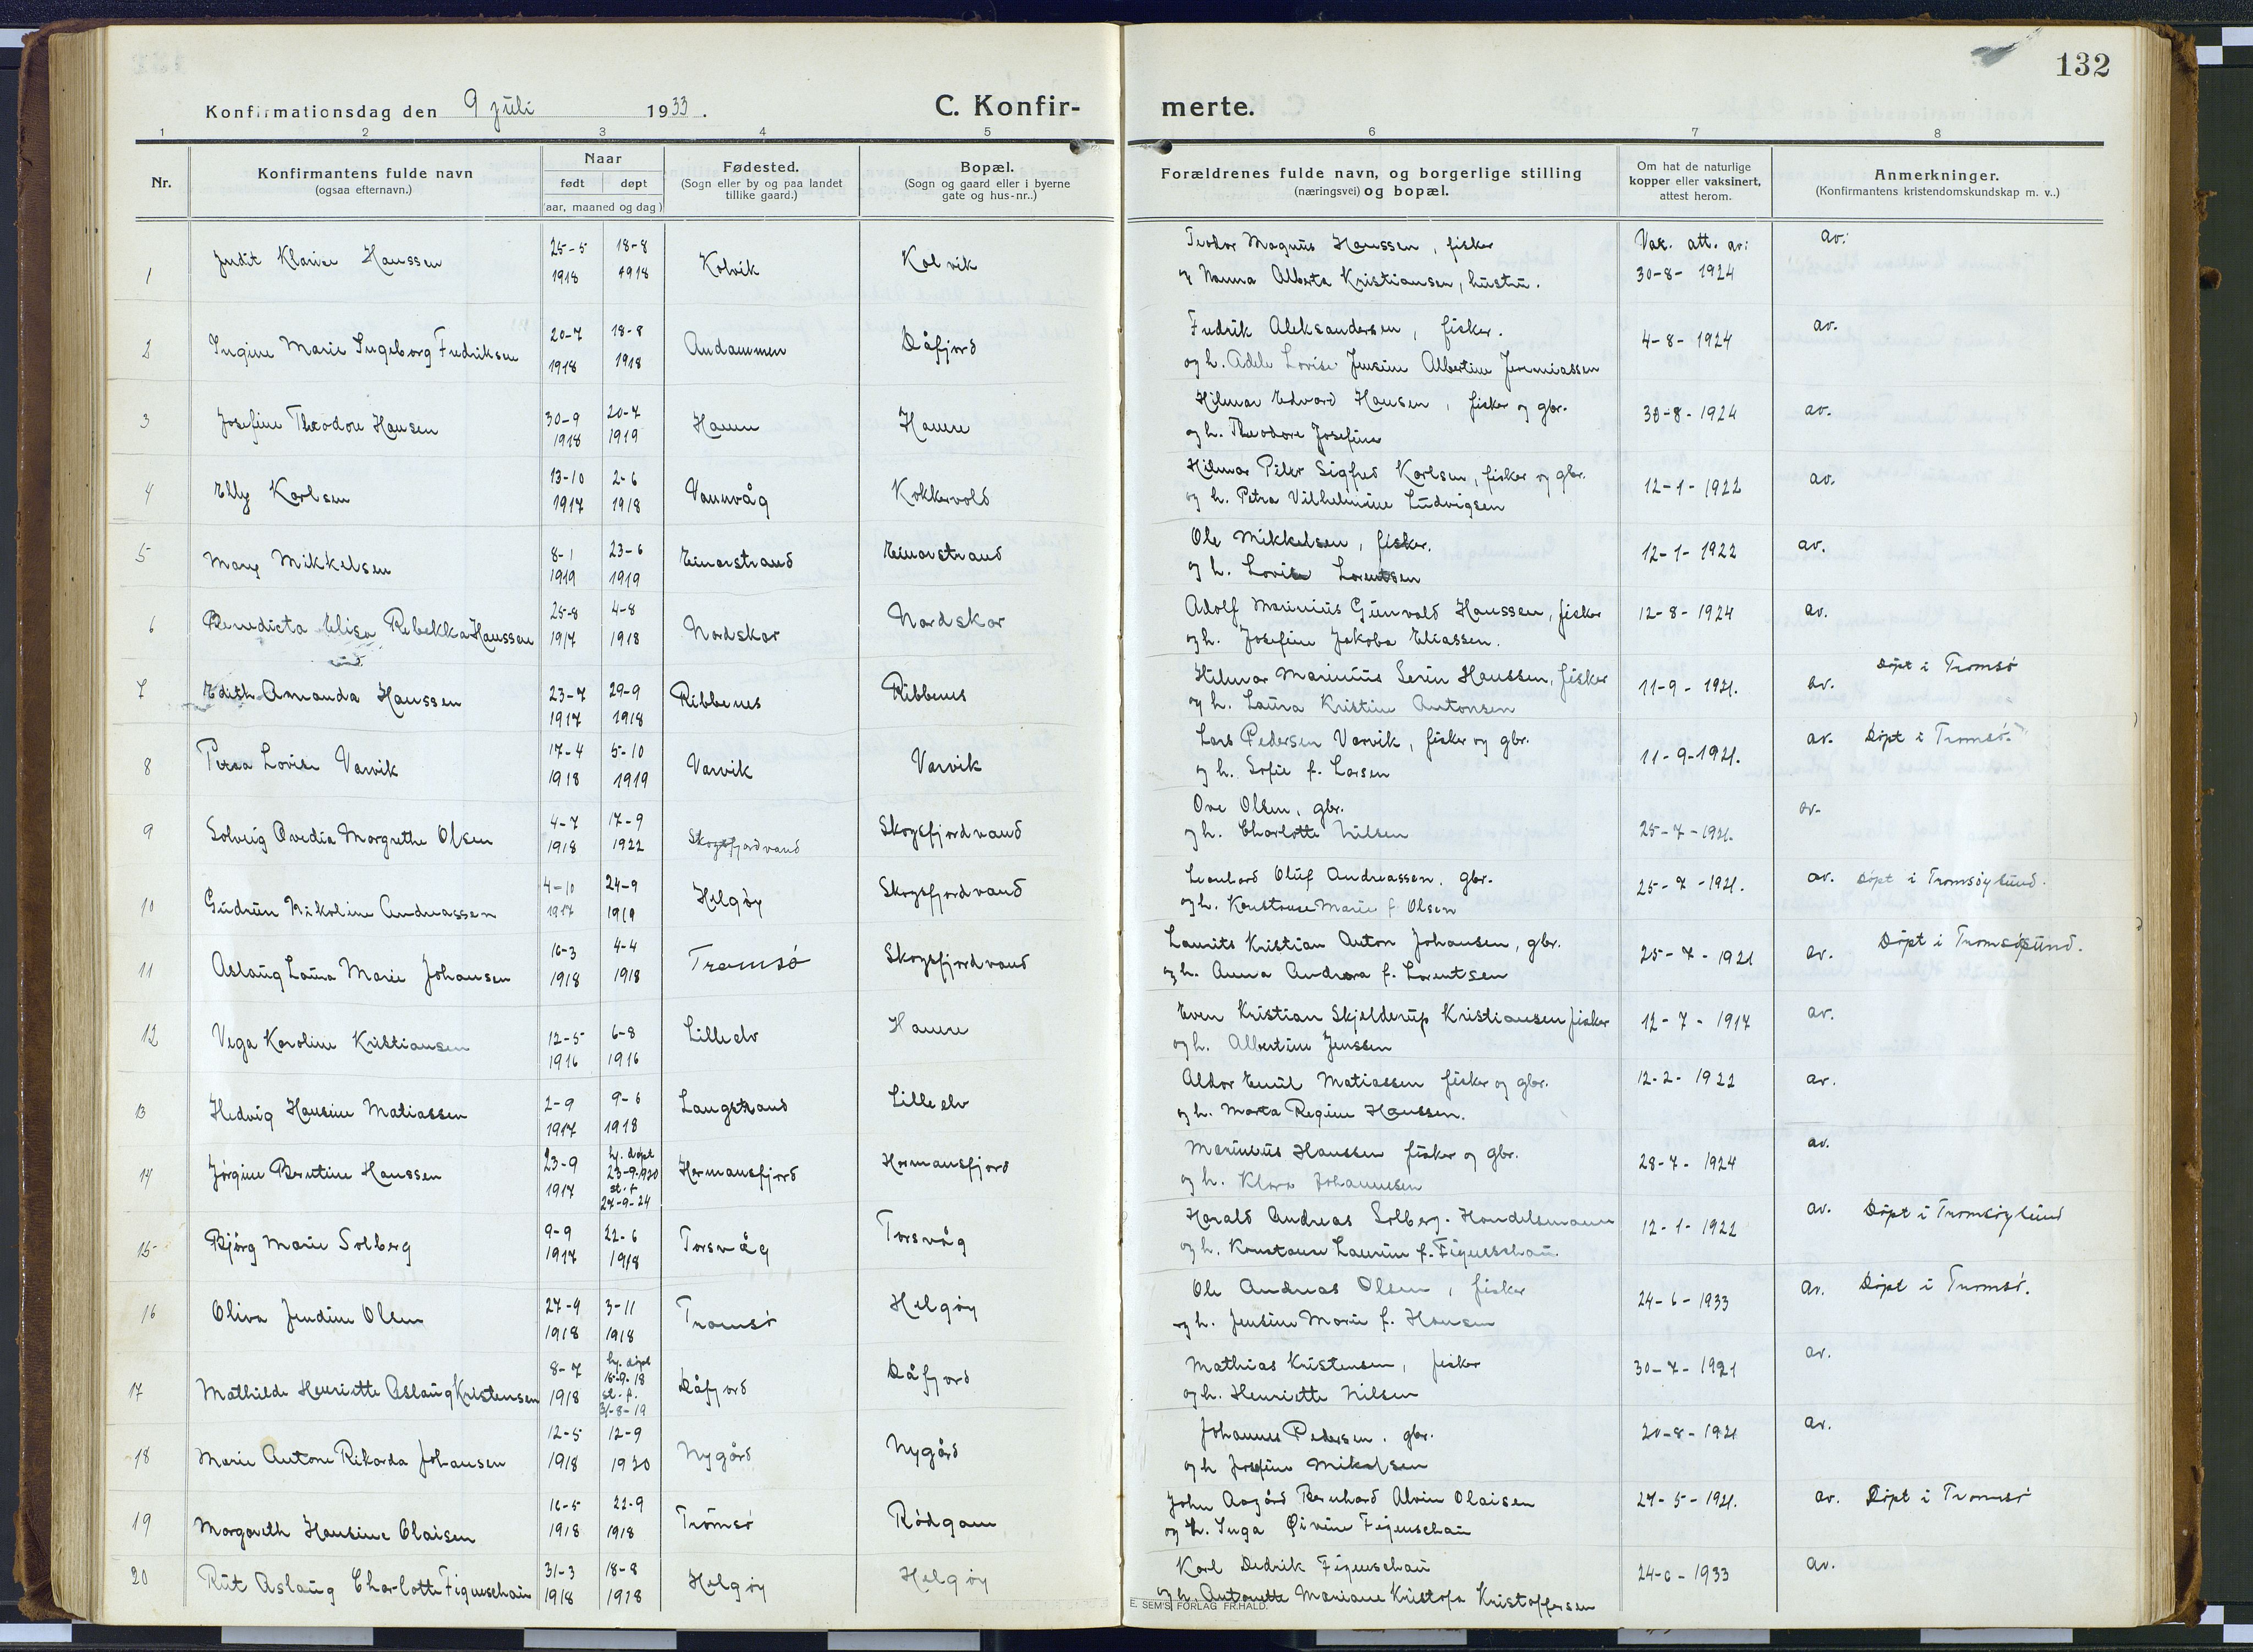 132
Konfirmationsdag den 9 juli 1933.
C. Konfir-
merte.
1 2 3 4 5 6 7 8
Nr.
Konfirmantens fulde navn
(ogsaa efternavn.)
Naar
født døpt
(aar, maaned og dag)
Fødested.
(Sogn eller by og paa landet
tillike gaard.)
Bopæl.
(Sogn og gaard eller i byerne
gate og hus-nr..)
Forældrenes fulde navn, og borgerlige stilling
(næringsvei) og bopæl.
Om hat de naturlige
kopper eller vaksinert,
attest herom.
Anmerkninger.
(Konfirmantens kristendomskundskap m. v..)
1 Judit Klarise Hanssen 25-5 1918 18-8 1918 Kolvik Kolvik Teodor Magnus Hanssen, fisker
og Nanna Alberta Kristiansen, hustru. Vak. att. av: 30-8-1924 av.
2 Ingine Marie Ingeborg Fredriksen 20-7 1918 18-8 1918 Andammen Dåfjord Fredrik Aleksandersen, fisker.
og h. Adele Lovise Jensine Albertine Jeremiassen 4-8-1924 av.
3 Josefine Theodore Hansen 30-9 1918 20-7 1919 Hamre Hamre Hilmar Edvard Hansen, fisker og gbr.
og h. Theodore Josefine 30-8-1924 av.
4 Elly Karlsen 13-10 1917 2-6 1918 Vannvåg Kokkevold Hilmar Peder Sigfred Karlsen, fisker og gbr.
og h. Petra Vilhelmine Ludvigsen 12-1-1922 av.
5 Mary Mikkelsen 8-1 1919 23-6 1919 Einarstrand Einarstrand Ole Mikkelsen, fisker.
og h. Lovise Lorentsen 12-1-1922 av.
6 Benedicta Elisa Rebekka Hanssen 25-8 1917 4-8 1918 Nordskar Nordskar Adolf Marinius Gunvald Hanssen, fisker
og h. Josefine Jakoba Eliassen. 12-8-1924 av.
7 Edith Amanda Hanssen 23-7 1917 29-9 1918 Ribbenes Ribbenes Hilmar Marinius Serin Hanssen, fisker
og h. Laura Kristine Antonsen 11-9-1921. av. Døpt i Tromsø
8 Petra Lovise Varvik 17-4 1918 5-10 1919 Varvik Varvik Lars Pedersen Varvik, fisker og gbr.
og h. Sofie f. Larsen 11-9-1921. av. Døpt i Tromsø.
9 Solveig Ovedia Margrethe Olsen 4-7 1918 17-9 1922 Skogsfjordvand Skogsfjordvand Ove Olsen, gbr.
og h. Charlotte Nilsen 25-7-1921. av.
10 Gudrun Nikoline Andreassen 4-10 1917 24-9 1919 Helgøy Skogsfjordvand Leonhard Oluf Andreassen, gbr.
og h. Konstanse Marie f. Olsen 25-7-1921. av. Døpt i Tromsøysund.
11 Aslaug Laura Marie Johansen 16-3 1918 4-4 1918 Tromsø Skogsfjordvand Laurits Kristian Anton Johansen, gbr.
og h. Anna Andrea f. Lorentsen 25-7-1921 av. Døpt i Tromsøsund.
12 Vega Karoline Kristiansen 12-5 1916 6-8 1916 Lilleelv Hamre Even Kristian Skjelderup Kristiansen fisker
og h. Albertine Jenssen 12-7-1917 av.
13 Hedvig Hansine Matiassen 2-9 1917 9-6 1918 Langstrand Lilleelv Aldor Emil Matiassen fisker og gbr.
og h. Marta Regine Hanssen. 12-2-1922 av.
14 Jørgine Berntine Hanssen 23-9 1917 hj. døpt 23-9-1920 st. f. 27-9-24 Hermansfjord Hermansfjord Marinius Hanssen fisker og gbr.
og h. Klara Johannesen 28-7-1924 av.
15 Bjørg Marie Solberg 9-9 1917 22-6 1918 Torsvåg Torsvåg Harald Andreas Solberg. Handelsmann
og h. Konstanse Laurine f. Figenschau. 12-1-1922 av. Døpt i Tromsøysund
16 Oliva Jendine Olsen 27-9 1918 3-11 1918 Tromsø Helgøy Ole Andreas Olsen, fisker
og h. Jensine Marie f. Hansen 24-6-1933 av. Døpt i Tromsø.
17 Mathilde Henriette Aslaug Kristensen 8-7 1918 hj. døpt 15-9-18 st. f. 31-8-19 Dåfjord Dåfjord Mathias Kristensen, fisker
og h. Henriette Nilsen 30-7-1921 av.
18 Marie Antone Rikarda Johansen 12-5 1918 12-9 1920 Nygård Nygård Johannes Pedersen. gbr.
og h Josefine Mikalsen 20-8-1921 av.
19 Margareth Hansine Olaisen 16-5 1918 22-9 1918 Tromsø Rødgam John Aagård Bernhard Alvin Olaisen
og h. Inga Øivine Figenschau 27-5-1921. av. Døpt i Tromsø
20 Rut Aslaug Charlotte Figenschau 31-3 1918 18-8 1918 Helgøy Helgøy Karl Dedrik Figenschau
og h. Antonette Mariane Kristofa Kristoffersen 24-6-1933 av.
E. SEM'S FORLAG FR.HALD.